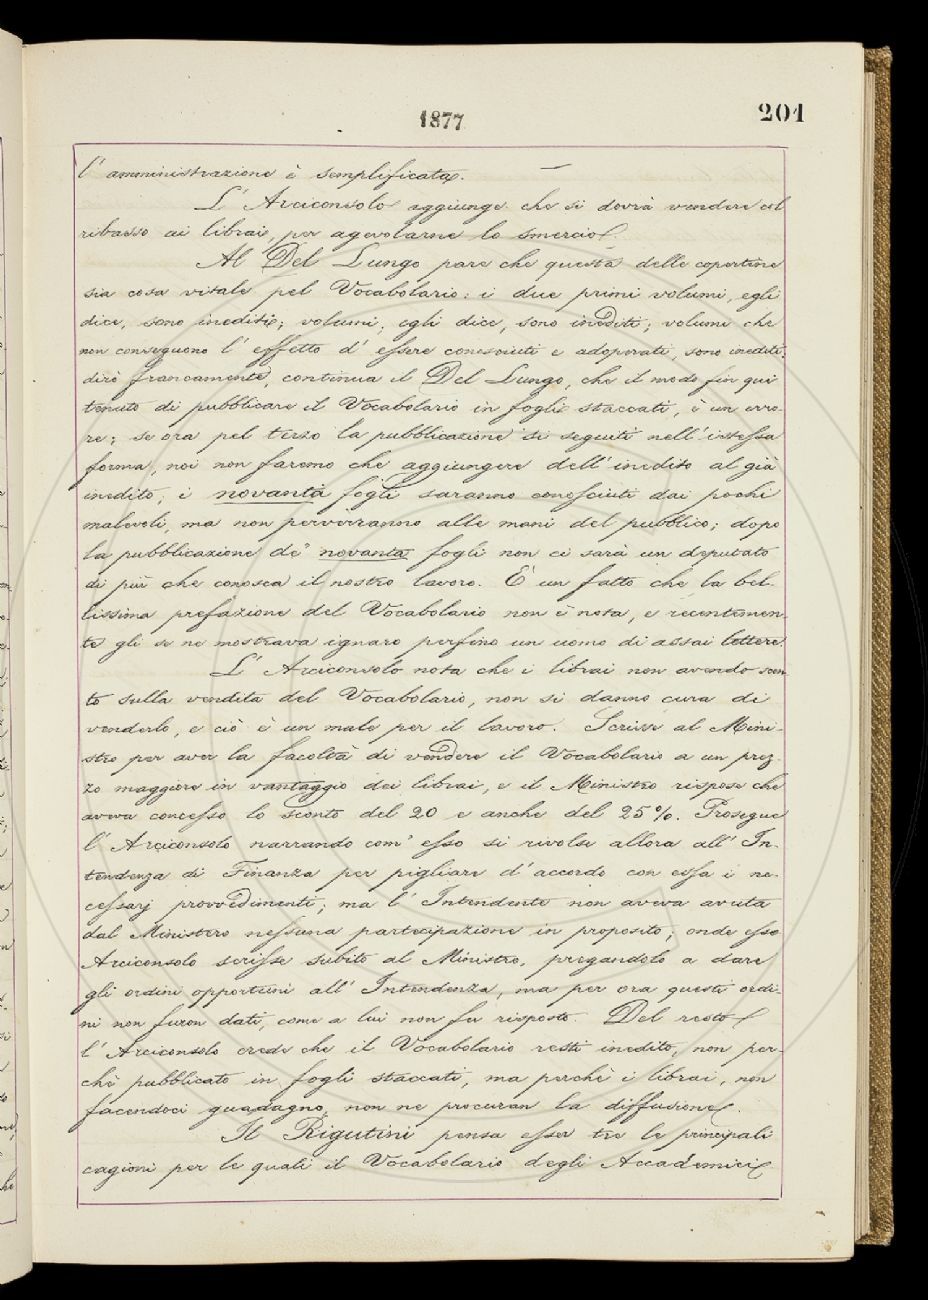 1877
201
l' amministrazione è semplificata. —
L' Arciconsolo aggiunge che si dovrà vendere col
ribasso ai librai, per agevolarne lo smercio.
Al Del Lungo pare che questa delle copertine
sia cosa vitale pel Vocabolario: i due primi volumi, egli
dice, sono inediti; volumi, egli dice, sono inediti; volumi che
non conseguono l' effetto d' essere conosciuti e adoperati, sono inediti.
dirò francamente, continua il Del Lungo, che il modo fin qui
tenuto di pubblicare il Vocabolario in fogli staccati, è un erro-
re; se ora pel terzo la pubblicazione si seguiti nell' istessa
forma, noi non faremo che aggiungere dell' inedito al già
inedito, i novanta fogli saranno conosciuti dai pochi
malevoli, ma non perverranno alle mani del pubblico; dopo
la pubblicazione de' novanta fogli non ci sarà un deputato
di più che conosca il nostro lavoro. È un fatto che la bel-
lissima prefazione del Vocabolario non è nota, e recentemen-
te gli se ne mostrava ignaro perfino un uomo di assai lettere.
L' Arciconsolo nota che i librai non avendo scon
to sulla vendita del Vocabolario, non si danno cura di
venderlo, e ciò è un male per il lavoro. Scrisse al Mini-
stro per aver la facoltà di vendere il Vocabolario a un prez-
zo maggiore in vantaggio dei librai, e il Ministro rispose che
aveva concesso lo sconto del 20 e anche del 25 %. Prosegue
l' Arciconsolo narrando com' esso si rivolse allora all' In-
tendenza di Finanza per pigliare d' accordo con essa i ne-
cessarj provvedimenti; ma l' Intendente non aveva avuta
dal Ministero nessuna partecipazione in proposito; onde esso
Arciconsolo scrisse subito al Ministro, pregandolo a dare
gli ordini opportuni all' Intendenza, ma per ora questi ordi-
ni non furon dati, come a lui non fu risposto. Del resto
l' Arciconsolo crede che il Vocabolario resti inedito, non per-
chè pubblicato in fogli staccati, ma perchè i librai, non
facendoci guadagno, non ne procuran la diffusione.
Il Rigutini pensa esser tre le principali
cagioni per le quali il Vocabolario degli Accademici